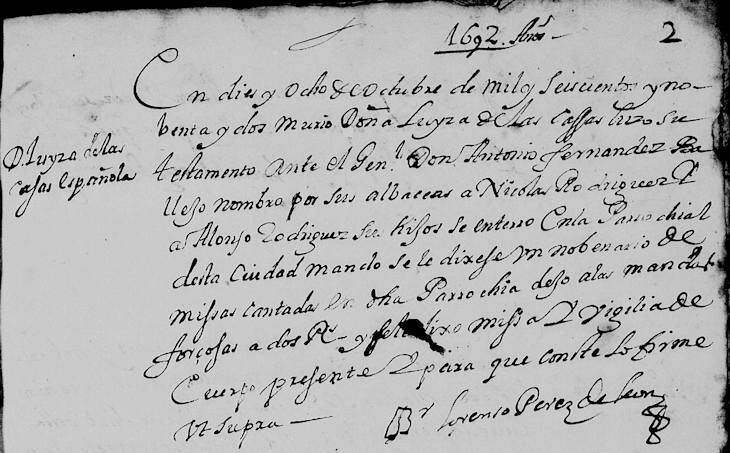 1692. Años
2
En dies y Ocho de Octubre de mil y Seiscientos y no-
benta y dos Murio Doña Luyza de las Cassas hizo su
testamento Ante el Gen.l Don Antonio fernandez
nombro por sus albaceas a Nicolas Rodriguez Y
a Alonso Rodriguez sus hijos se enterro En la Parrochial
desta Ciudad mando se le dixese Vn nobenario de
missas cantadas en dha Parrochia dejo a las mandas
forçosas a dos Rs y se le dixo missa Y Vigilia de
Cuerpo presente Y para que conste lo firme
Vt Supra
Br Lorenso Perez de leon
D. Luyza de las
Casas Española